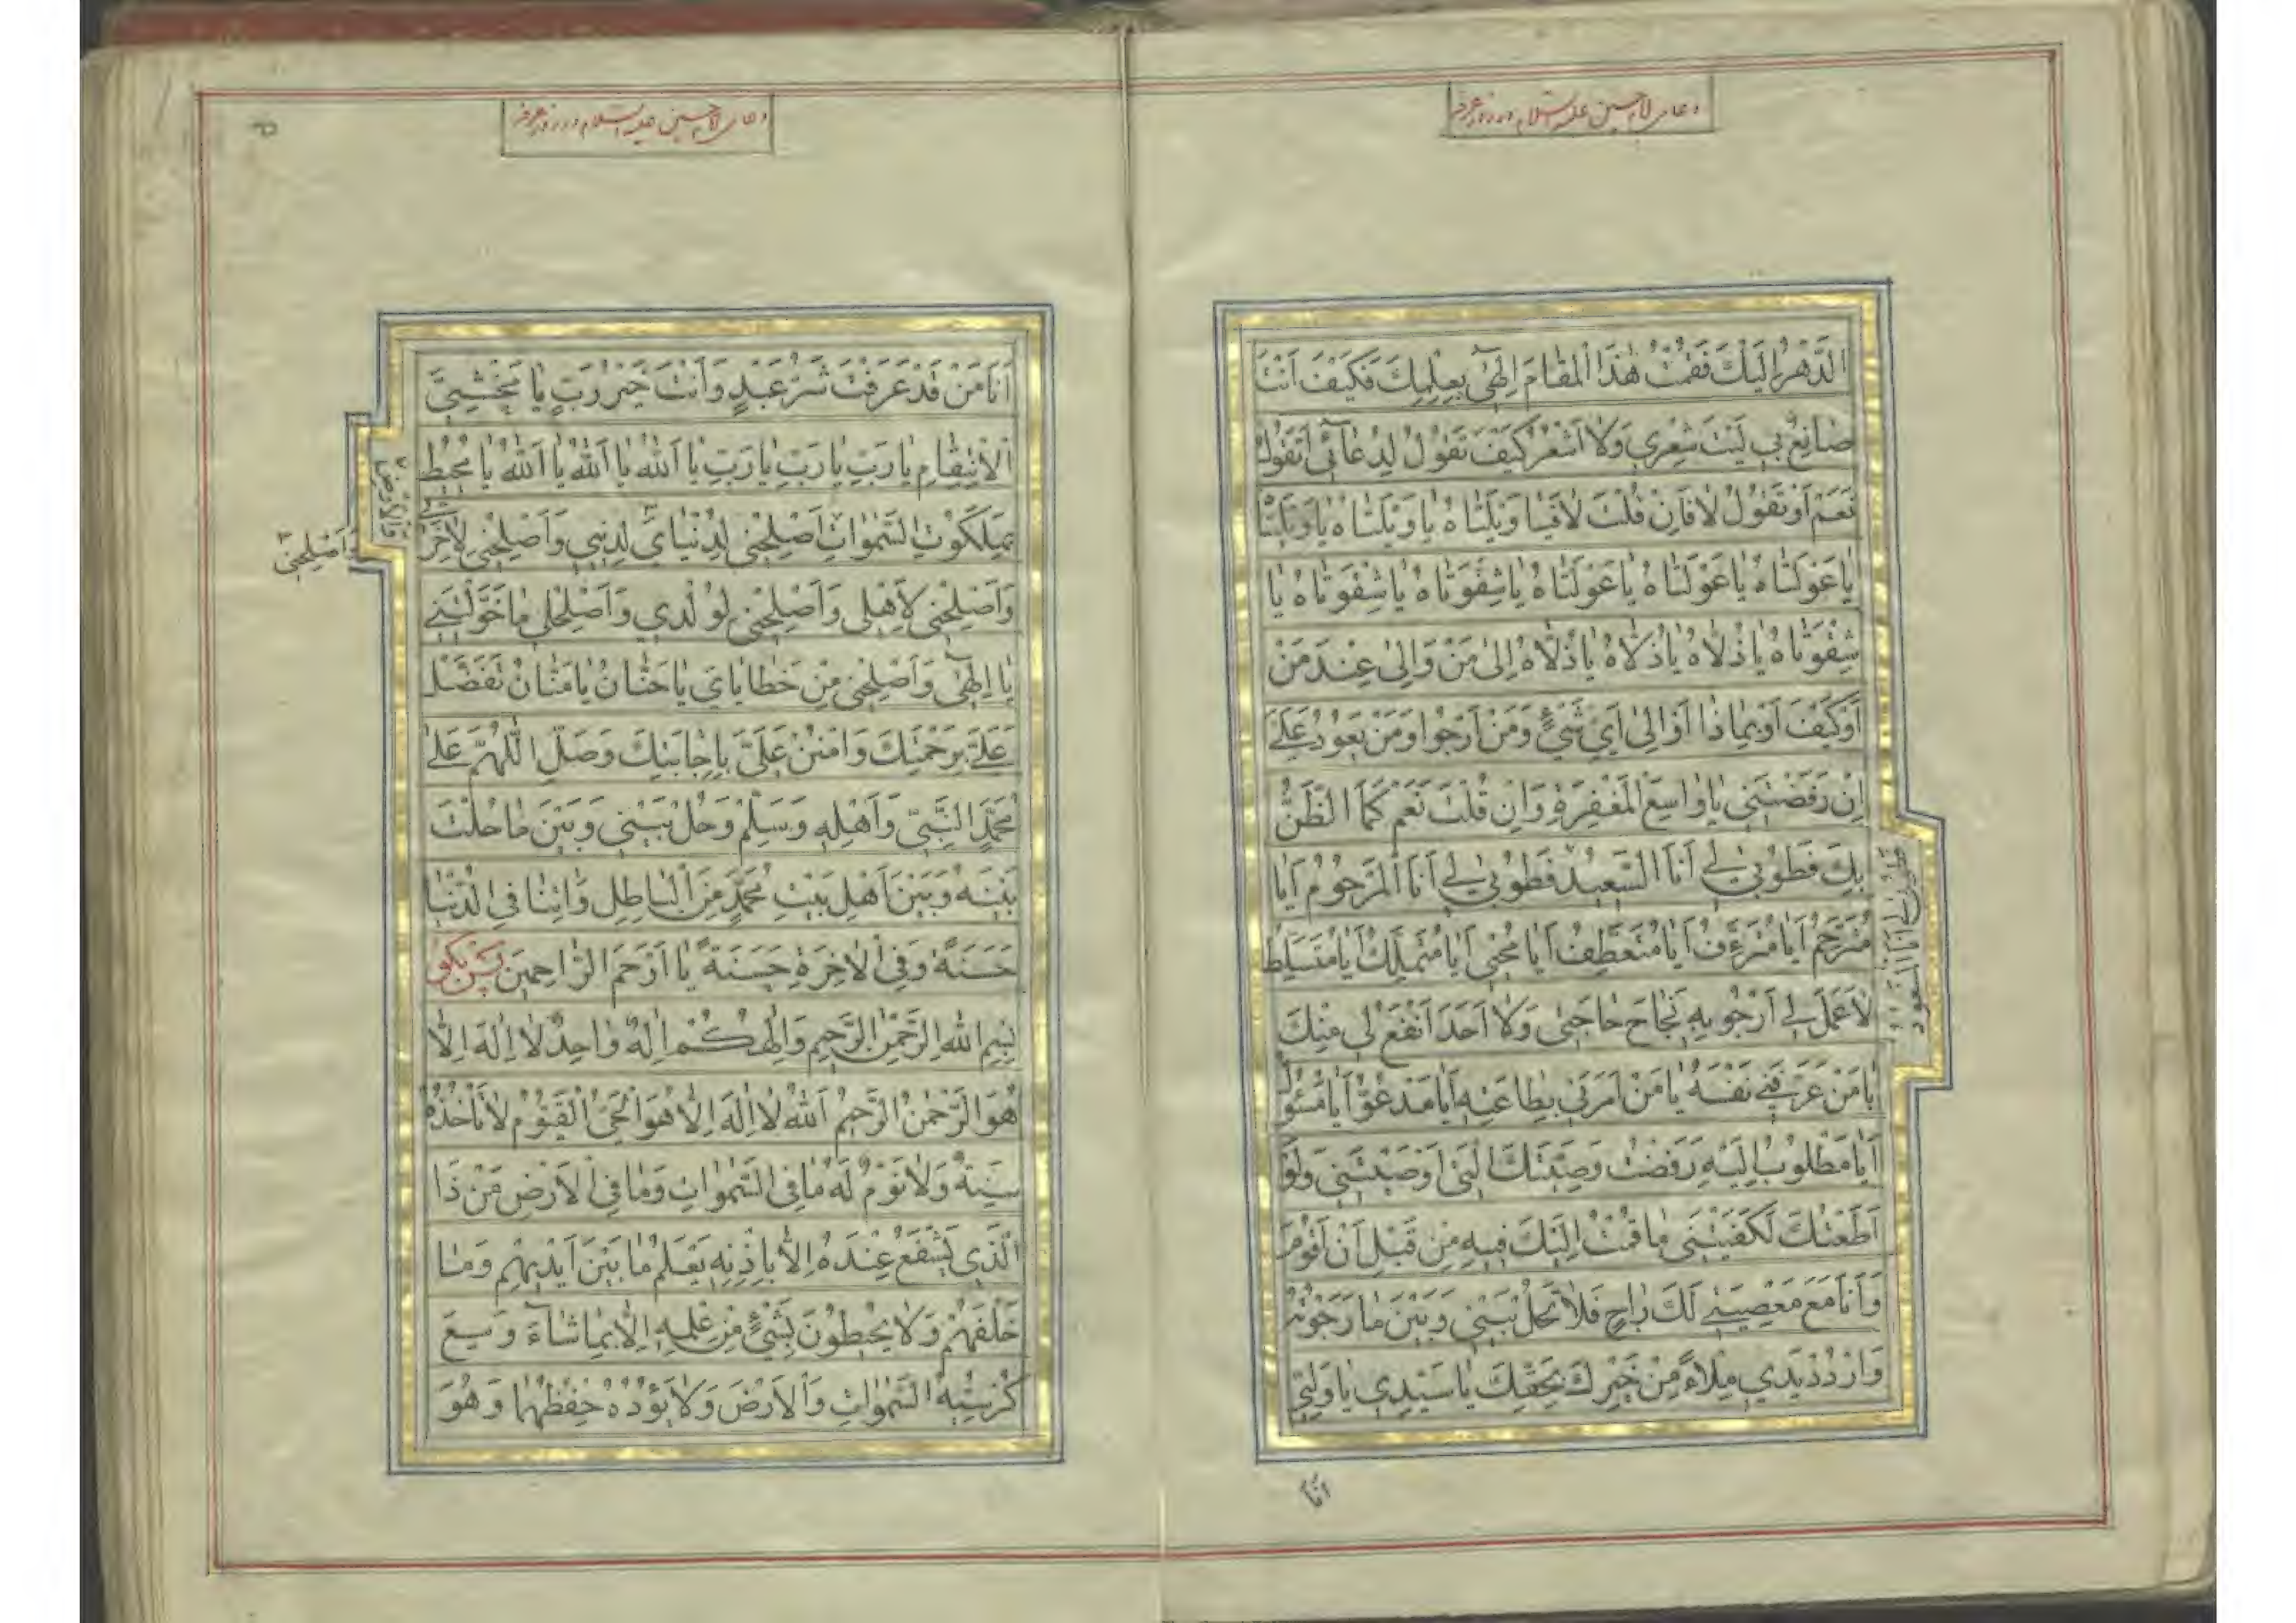 دعای امام حسین علیه السلام در روز عرفه
الدَّهْرُ اِلَيْكَ فَقُمْتُ هٰذَا الْمَقامَ اِلٰهی بِعِلْمِكَ فَكَيْفَ اَنْتَ
صانِعٌ بی لَيْتَ شِعْری وَلا اَشْعُرُ كَيْفَ تَقُولُ لِدُعآئی اَتَقُولُ
نَعَمْ اَوْ تَقُولُ لا فَاِنْ قُلْتَ لا فَيا وَيْلَتاهُ يا وَيْلَتاهُ يا وَيْلَتا
يا عَوْلَتاهُ يا عَوْلَتاهُ يا عَوْلَتاهُ يا شِقْوَتاهُ يا شِقْوَتاهُ يا
شِقْوَتاهُ يا ذُلّاهُ يا ذُلّاهُ يا ذُلّاهُ اِلیٰ مَنْ وَاِلیٰ عِنْدَ مَنْ
اَوْ كَيْفَ اَوْ بِماذا اَوْ اِلیٰ اَیِّ شَیْءٍ وَمَنْ اَرْجُوا وَمَنْ يَعُودُ عَلَیَّ
اِنْ رَفَضْتَنی يا واسِعَ الْمَغْفِرَةِ وَاِنْ قُلْتَ نَعَمْ كَمَا الظَّنُّ
بِكَ فَطُوبیٰ لی اَنَا السَّعيدُ فَطُوبیٰ لی اَنَا الْمَرْحُومُ اَيا
طوبی لی انا المسعود
مُتَرَحِّمُ اَيا مُتَرَءِّفُ اَيا مُتَعَطِّفُ اَيا مُحْيی اَيا مُتَمَلِّكُ اَيا مُتَسَلِّطُ
لا عَمَلَ لی اَرْجُو بِهِ نَجاحَ حاجَتی وَلا اَحَدَ اَنْفَعُ لی مِنْكَ
يا مَنْ عَرَّفَنی نَفْسَهُ يا مَنْ اَمَرَنی بِطاعَتِهِ اَيا مَدْعُوُّ اَيا مَسْئُولُ
اَيا مَطْلُوبُ اِلَيْهِ رَفَضْتُ وَصِيَّتَكَ الَّتی اَوْصَيْتَنی وَلَوْ
اَطَعْتُكَ لَكَفَيْتَنی ما قُمْتُ اِلَيْكَ فيهِ مِنْ قَبْلِ اَنْ اَقُومَ
وَاَنَا مَعَ مَعْصِيَتی لَكَ راجٍ فَلا تَحُلْ بَيْنی وَبَيْنَ ما رَجَوْتُ
وَارْدُدْ يَدی مِلْاءً مِنْ خَيْرِكَ بِحَقِّكَ يا سَيِّدی يا وَلِیّی
انا
دعای امام حسین علیه السلام در روز عرفه
اَنَا مَنْ قَدْ عَرَفْتَ شَرُّ عَبْدٍ وَاَنْتَ خَيْرُ رَبٍّ يا مَخْشِیَّ
الْاِنْتِقامِ يا رَبِّ يا رَبِّ يا رَبِّ يا اَللهُ يا اَللهُ يا اَللهُ يا مُحيطُ
بِمَلَكُوتِ السَّمٰواتِ اَصْلِحْنی لِدُنْيایَ لِدينی وَاَصْلِحْنی لِاٰخِرَتی
والارضین
واصلحنی
وَاَصْلِحْنی لِاَهْلی وَاَصْلِحْنی لِوُلْدی وَاَصْلِحْ لی ما خَوَّلْتَنی
يا اِلٰهی وَاَصْلِحْنی مِنْ خَطايایَ يا حَنّانُ يا مَنّانُ تَفَضَّلْ
عَلَیَّ بِرَحْمَتِكَ وَامْنُنْ عَلَیَّ بِاِجابَتِكَ وَصَلِّ اللّٰهُمَّ عَلیٰ
مُحَمَّدٍ النَّبِیِّ وَاَهْلِهِ وَسَلِّمْ وَحُلْ بَيْنی وَبَيْنَ ما حُلْتَ
بَيْنَهُ وَبَيْنَ اَهْلِ بَيْتِ مُحَمَّدٍ مِنَ الْباطِلِ وَاٰتِنا فِی الدُّنْيا
حَسَنَةً وَفِی الْاٰخِرَةِ حَسَنَةً يا اَرْحَمَ الرّاحِمينَ پس بگو
بِسْمِ اللهِ الرَّحْمٰنِ الرَّحيمِ وَاِلٰهُكُمْ اِلٰهٌ واحِدٌ لا اِلٰهَ اِلّا
هُوَ الرَّحْمٰنُ الرَّحيمُ اَللهُ لا اِلٰهَ اِلّا هُوَ الْحَیُّ الْقَيُّومُ لا تَأْخُذُهُ
سِنَةٌ وَلا نَوْمٌ لَهُ ما فِی السَّمٰواتِ وَما فِی الْاَرْضِ مَنْ ذَا
الَّذی يَشْفَعُ عِنْدَهُ اِلّا بِاِذْنِهِ يَعْلَمُ ما بَيْنَ اَيْديهِمْ وَما
خَلْفَهُمْ وَلا يُحيطُونَ بِشَیْءٍ مِنْ عِلْمِهِ اِلّا بِما شآءَ وَسِعَ
كُرْسِيُّهُ السَّمٰواتِ وَالْاَرْضَ وَلا يَؤُدُهُ حِفْظُهُما وَهُوَ